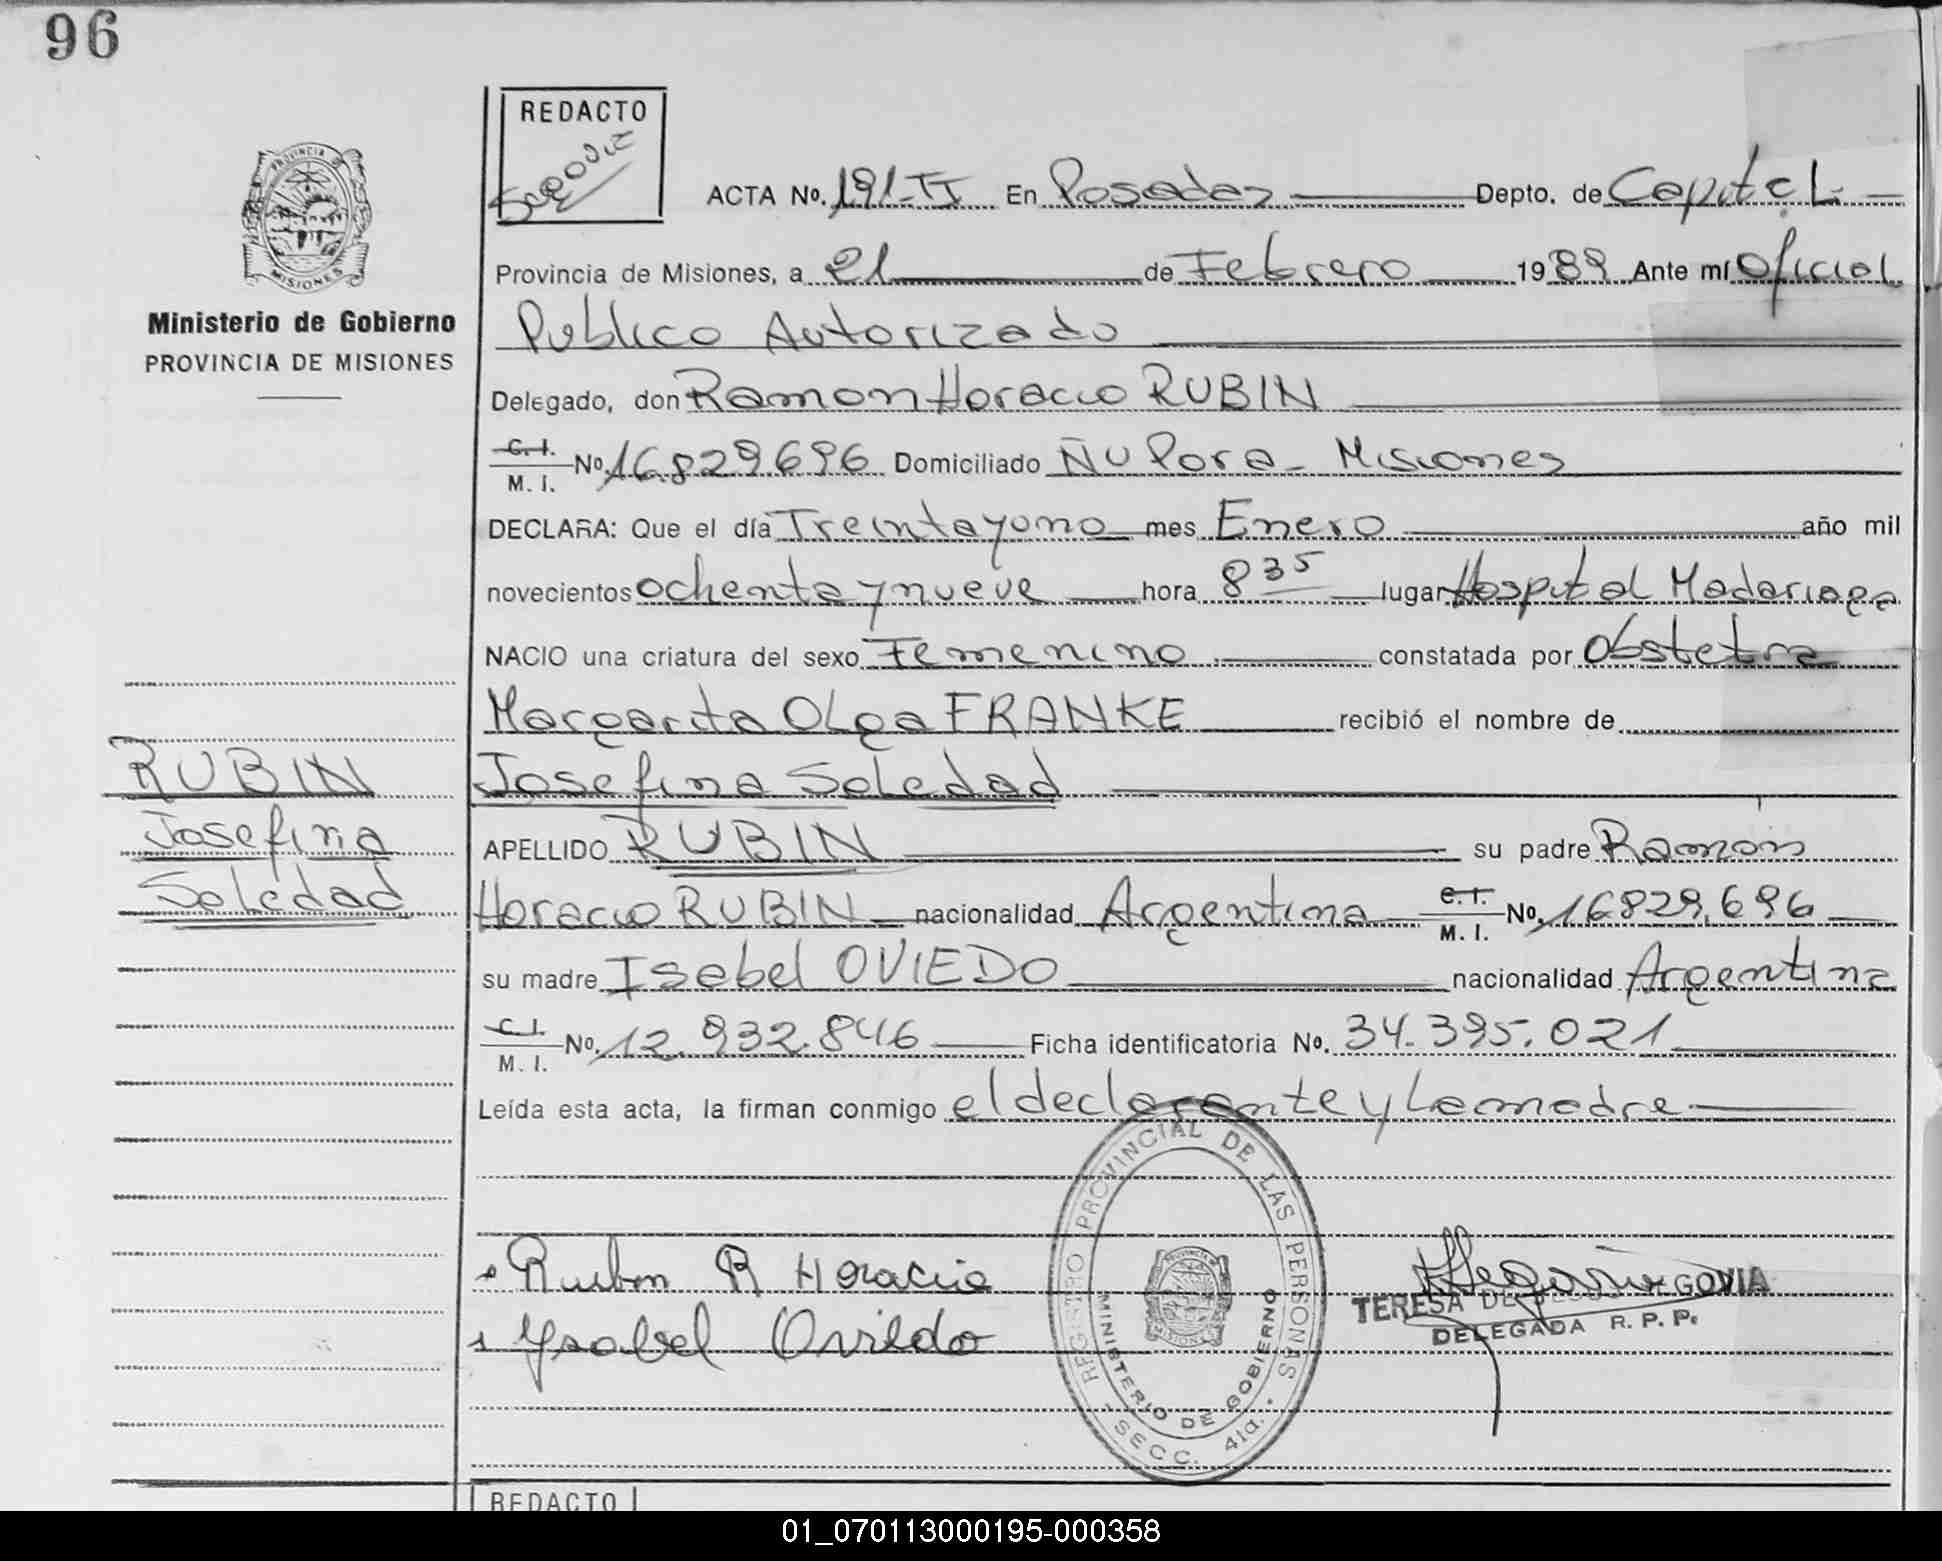 96
REDACTO
ACTA No. 191-II En Posadas Depto. de Capital
Provincia de Misiones, a 21 de Febrero 1989 Ante mí Oficial
Publico Autorizado
Ministerio de Gobierno
PROVINCIA DE MISIONES
Delegado, don Ramon Horacio RUBIN
C.I. M. I. No. 16.829.696 Domiciliado Ñu Pora - Misiones
DECLARA: Que el día Treinta y uno mes Enero año mil
novecientos ochenta y nueve hora 8 35 lugar Hospital Madariaga
NACIO una criatura del sexo Femenino constatada por Obstetra
Margarita Olga FRANKE recibió el nombre de
RUBIN
Josefina Soledad
Josefina
APELLIDO RUBIN su padre Ramón
Soledad
Horacio RUBIN nacionalidad Argentina C.I. M. I. No. 16829.696
su madre Isabel OVIEDO nacionalidad Argentina
C.I. M. I. No. 12.932.846 Ficha identificatoria No. 34.395.021
Leída esta acta, la firman conmigo el declarante y la madre
REGISTRO PROVINCIAL DE LAS PERSONAS
MINISTERIO DE GOBIERNO
- SECC. 41a. -
Rubin R Horacio
Ysabel Oviedo
TERESA DE JESUS SEGOVIA
DELEGADA R. P. P.
REDACTO
01_070113000195-000358